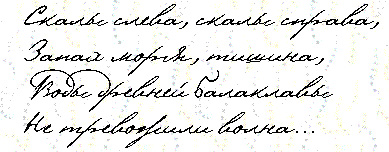 Скалы слева, скалы справа,
Запах моря, тишина,
Воды древней Балаклавы
Не тревожили волна...